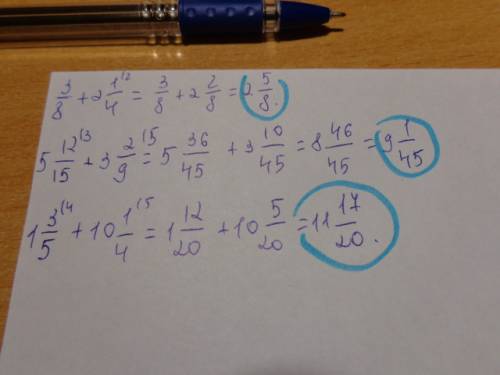 3/8 + 2 1/4 \2 = 3/8 + 2 2/8 = 2 5/8.
5 12/15 \3 + 3 2/9 \5 = 5 36/45 + 3 10/45 = 8 46/45 = 9 1/45
1 3/5 \4 + 10 1/4 \5 = 1 12/20 + 10 5/20 = 11 17/20.